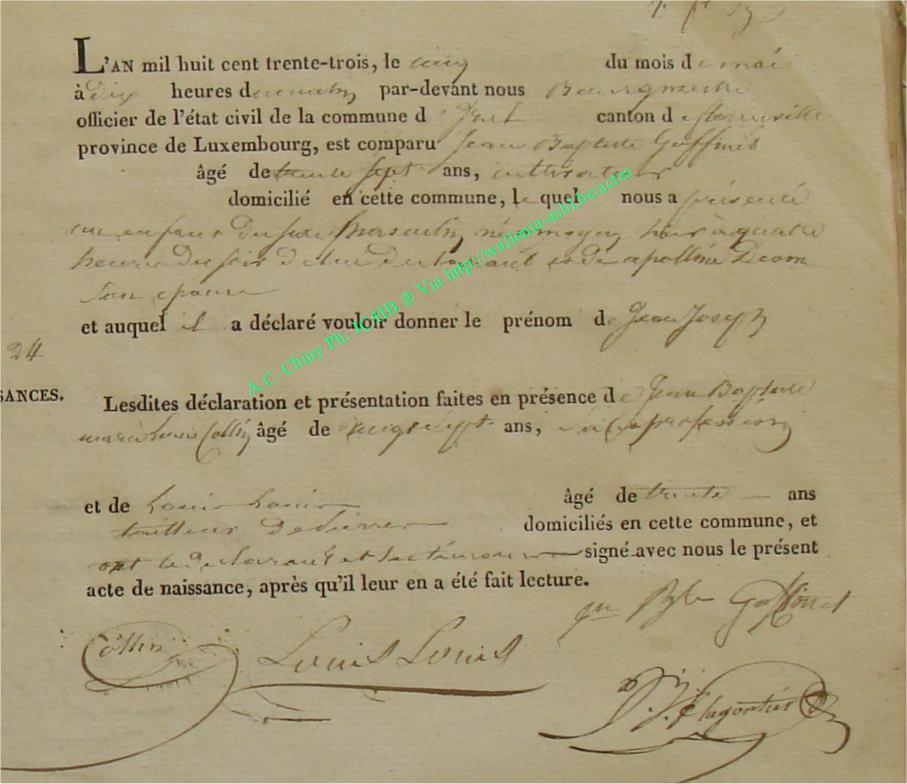 L'AN mil huit cent trente-trois, le cinq du mois de mai
à dix heures du matin par-devant nous Bourgmestre
officier de l'état civil de la commune d canton de florenville
province de Luxembourg, est comparu Jean Baptiste Goffinet
âgé de trente sept ans, cultivateur
domicilié en cette commune, lequel nous a présenté
un enfant du sexe masculin, né hier à quatre
heures du soir de lui déclarant et de apolline
son epouse
et auquel il a déclaré vouloir donner le prénom de Jean Joseph
24
SANCES.
Lesdites déclaration et présentation faites en présence de Jean Baptiste
marie Louis Collin âgé de vingt sept ans, profession
et de Louis Louis âgé de trente ans
tailleur de pierres domiciliés en cette commune, et
ont le déclarant et les témoins signé avec nous le présent
acte de naissance, après qu'il leur en a été fait lecture.
Goffinet
Collin Louis Louis
A.C. Chiny Ph. R. AIB @ Via http://wallonia-asbl.be/actes